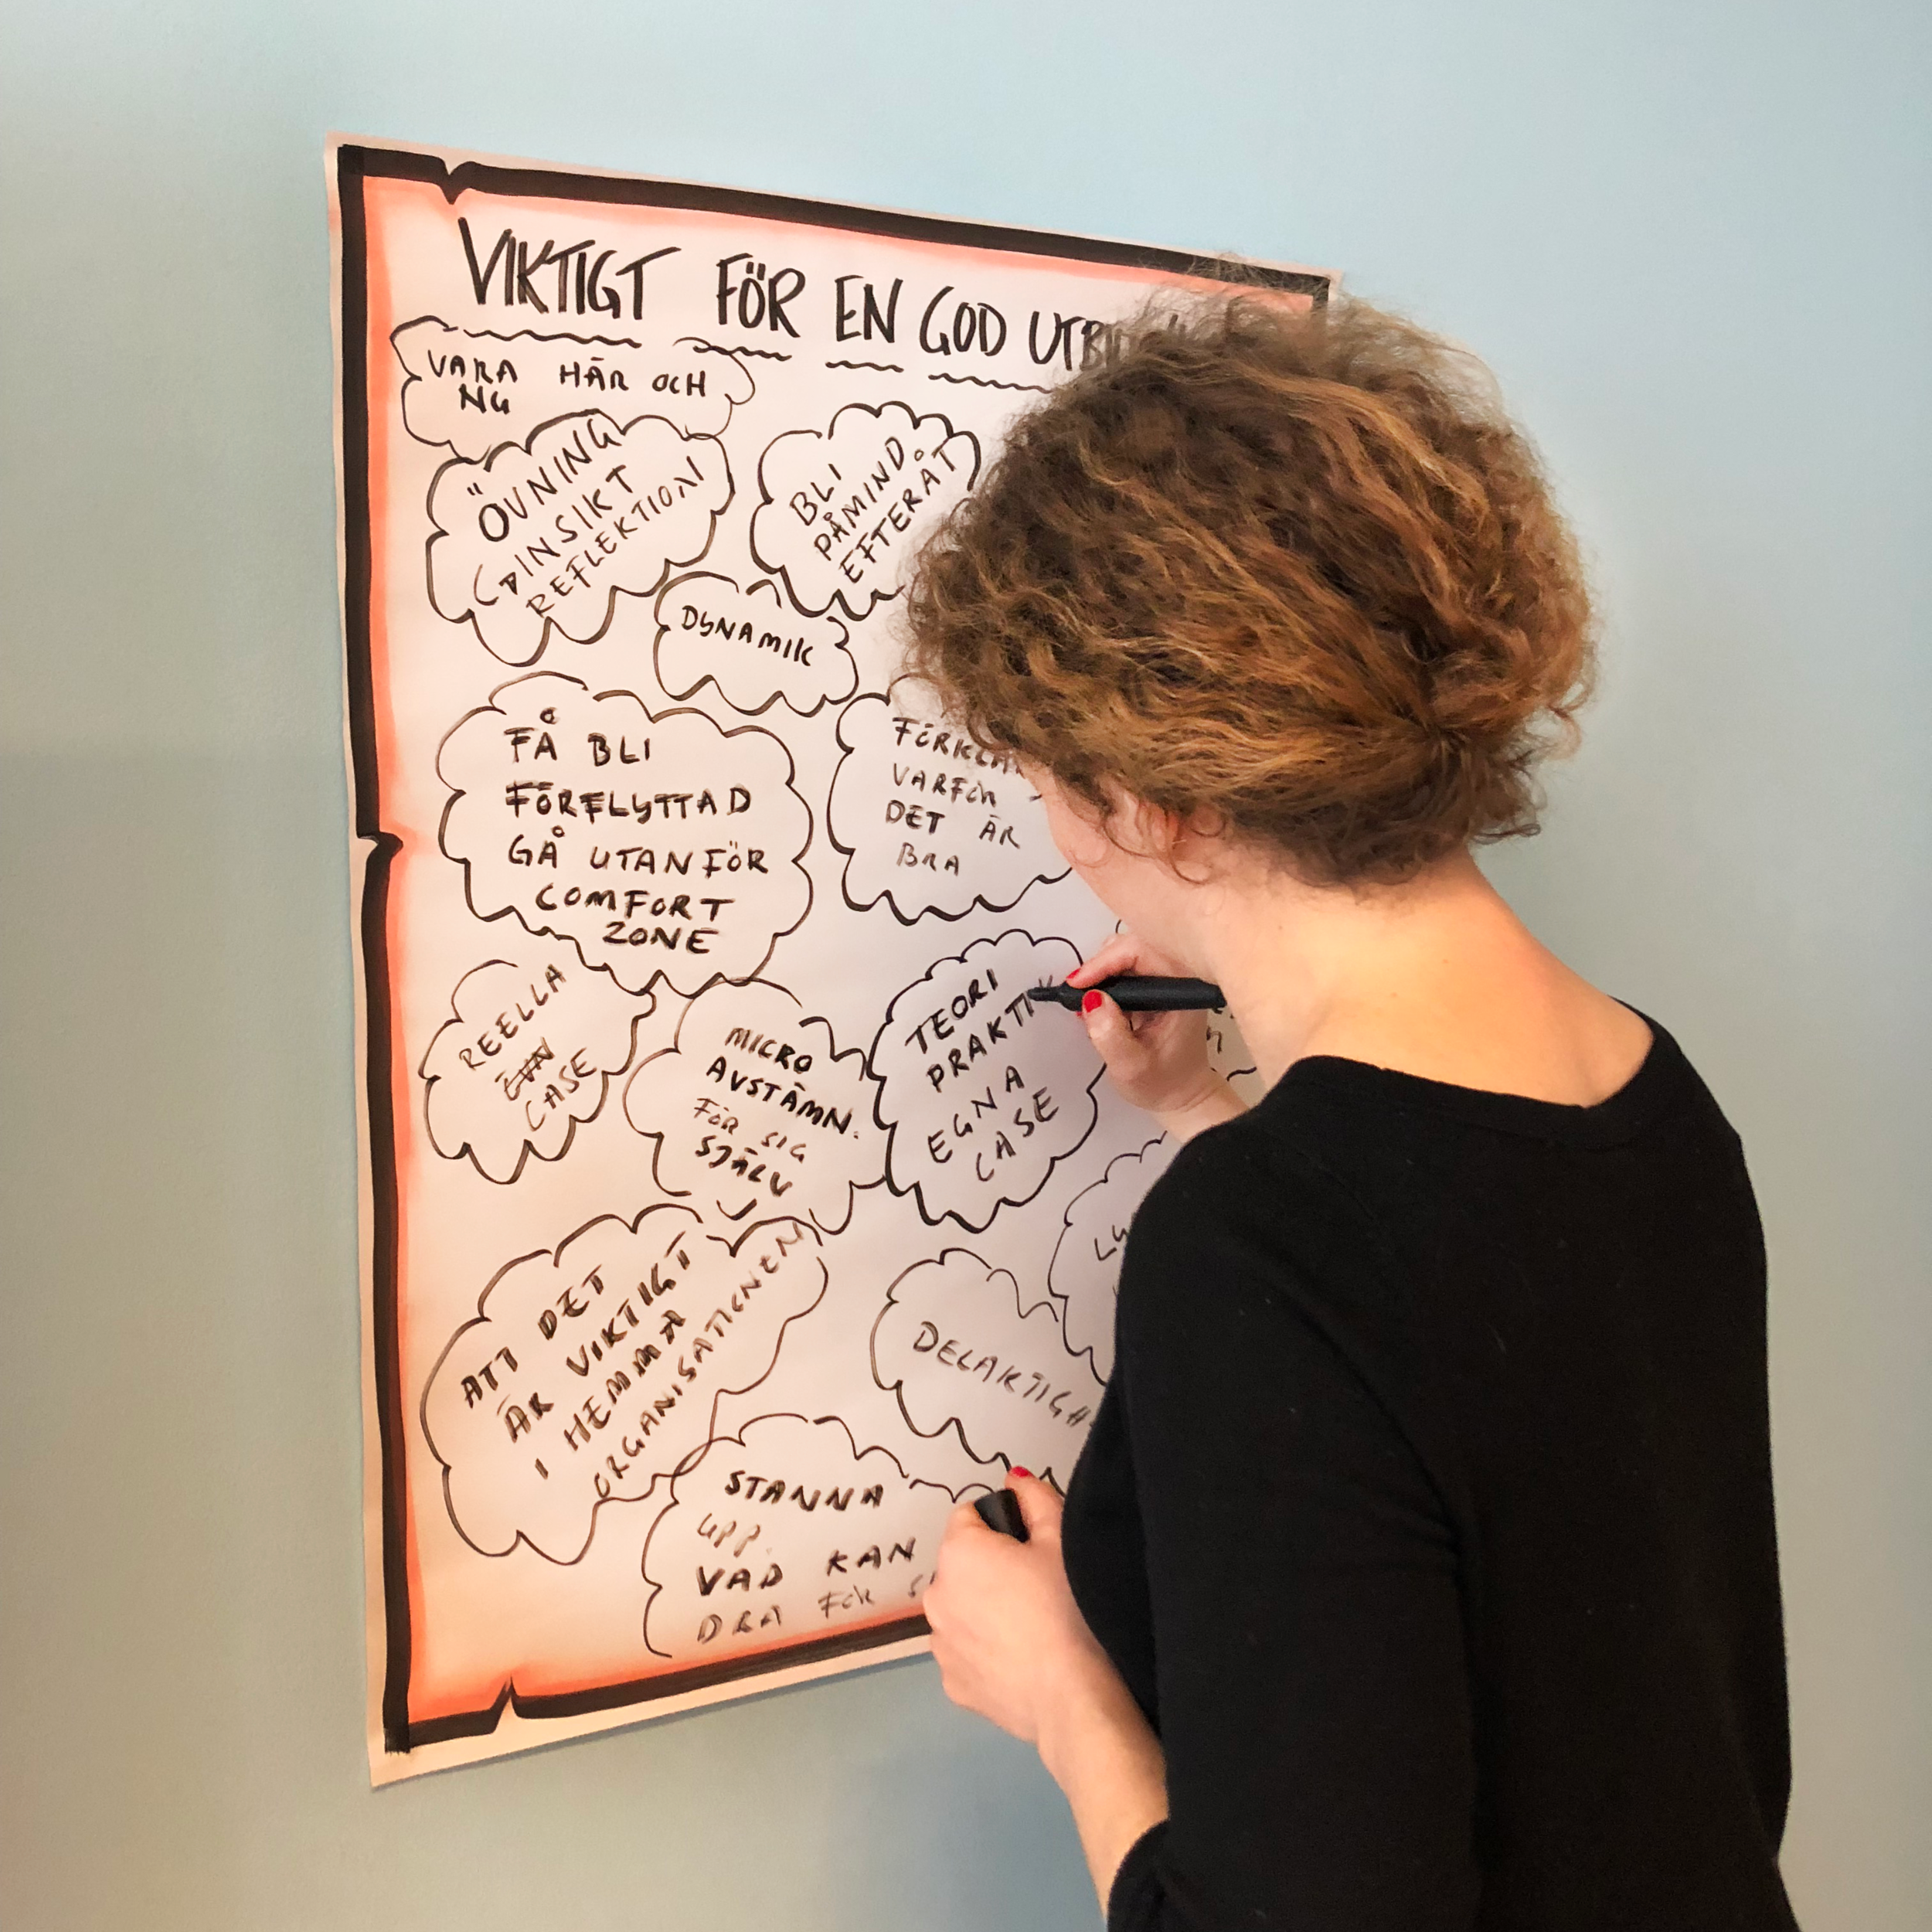 VIKTIGT FÖR EN GOD
VARA HÄR OCH
NU
ÖVNING
INSIKT
REFLEKTION
BLI
PÅMIND.
EFTERÅT
DYNAMIK
FÅ BLI
FÖRFLYTTAD
GÅ UTANFÖR
COMFORT
ZONE
VARFÖR
DET ÄR
BRA
REELLA
CASE
MICRO
AVSTÄMN.
FÖR SIG
SJÄLV
TEORI
PRAKTIK
EGNA
CASE
ATT DET
ÄR VIKTIGT
I HEMMA
ORGANISATIONEN
STANNA
UPP.
VAD KAN
DRA FÖR